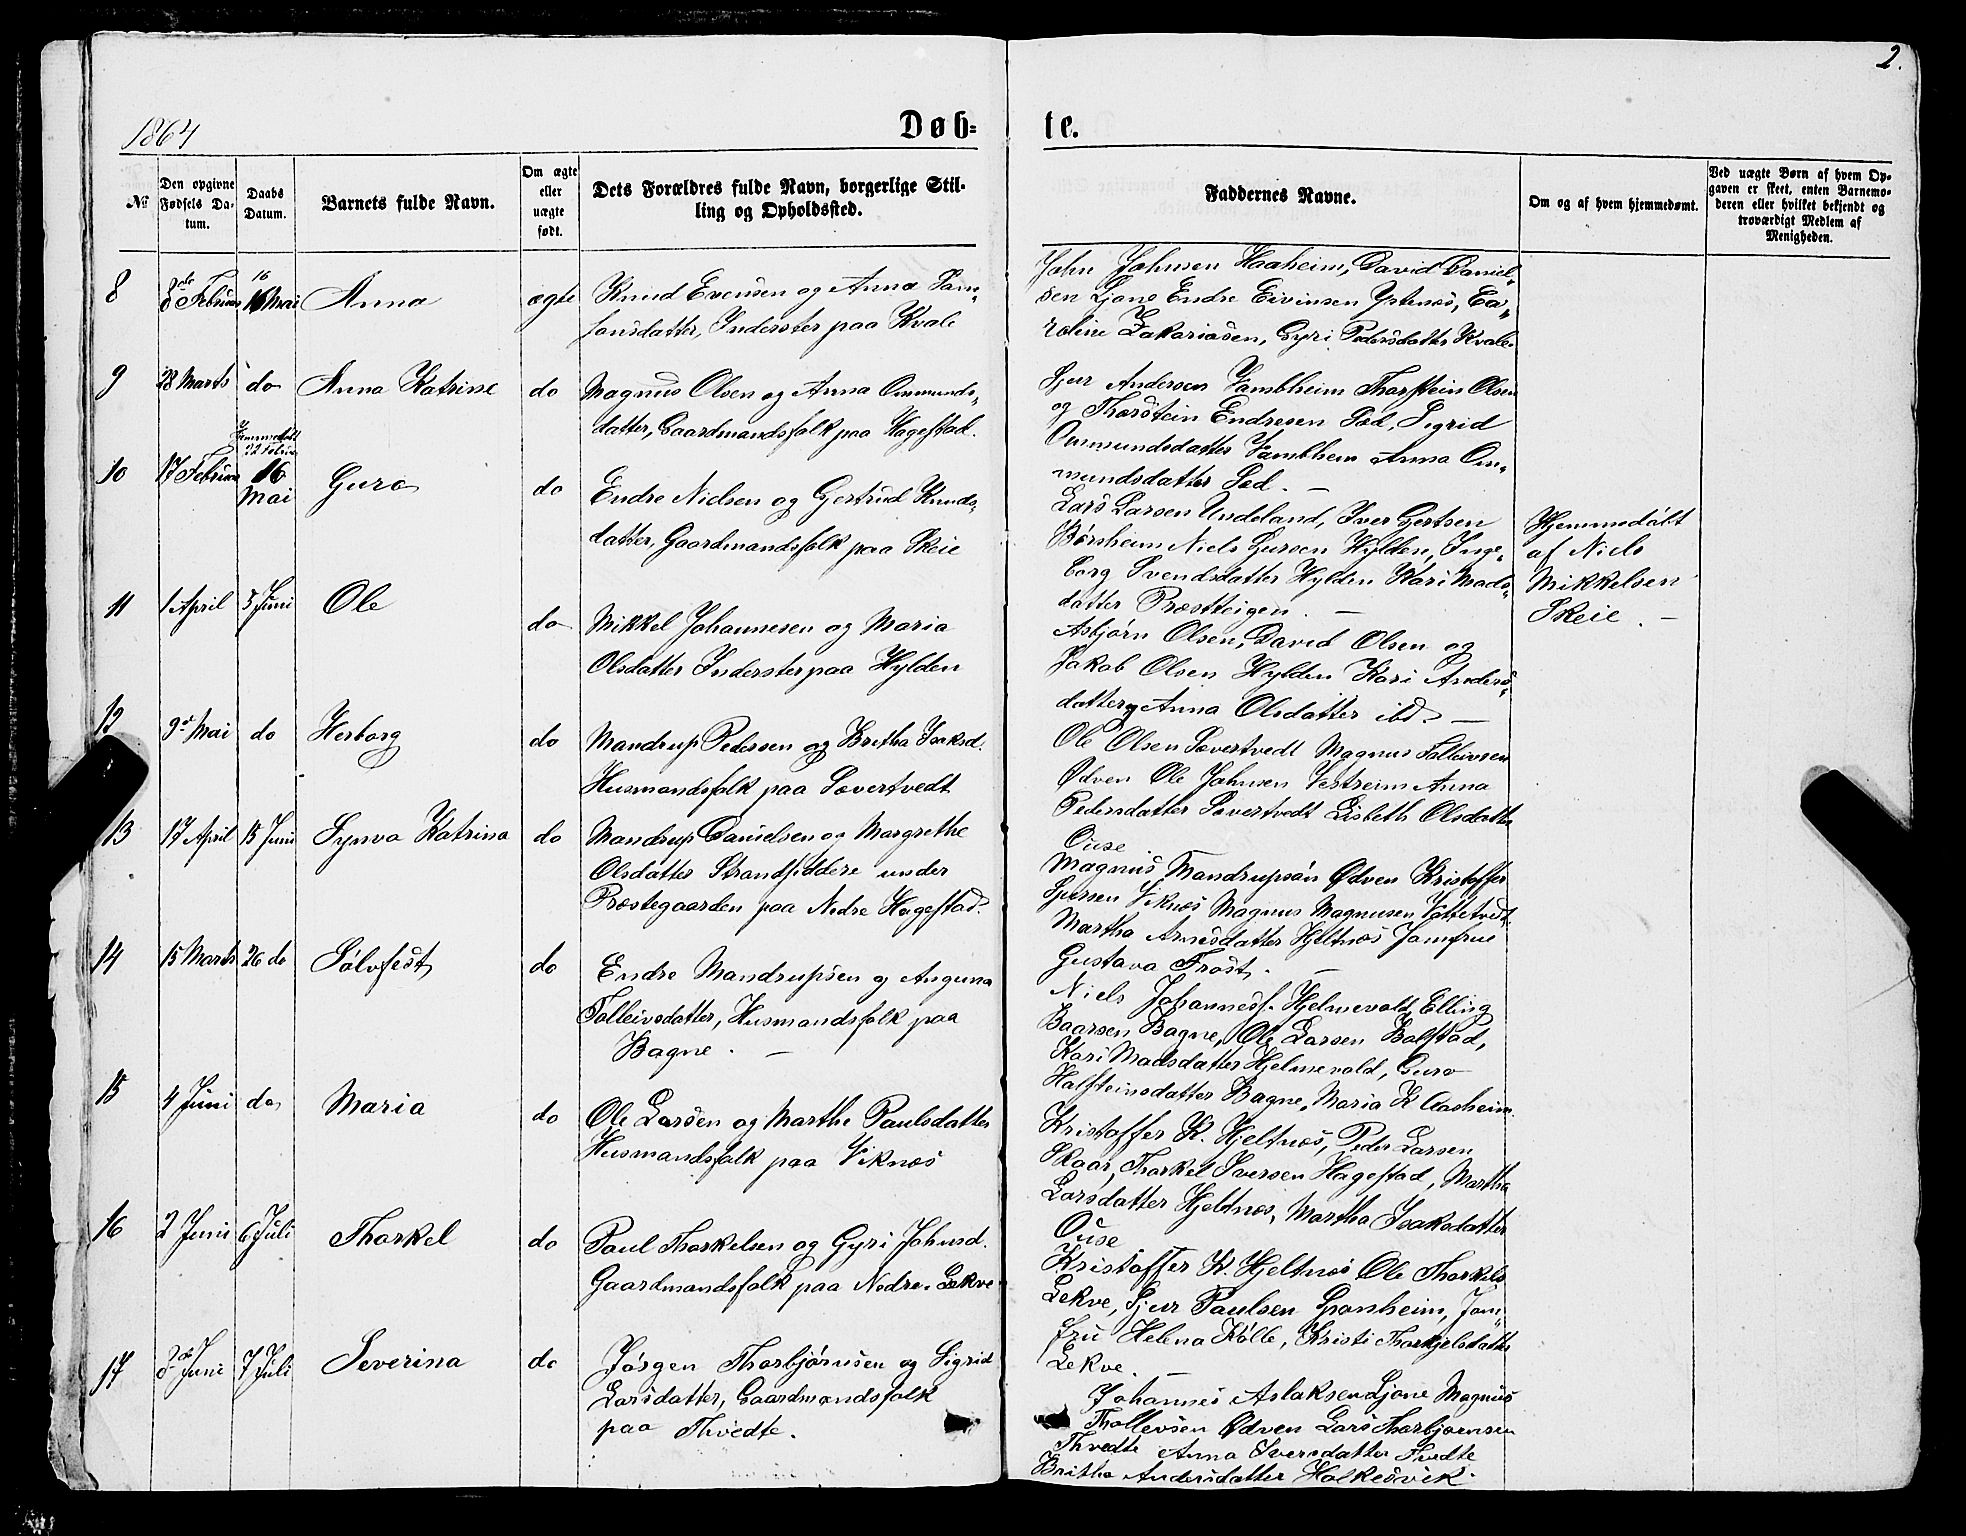 2.
1864
Døb=
te.
№
Den opgivne Fødsels Datum.
Daabs Datum.
Barnets fulde Navn.
Om ægte eller uægte født.
Dets Forældres fulde Navn, borgerlige Stilling og Opholdssted.
Faddernes Navne.
Om og af hvem hjemmedømt.
Ved uægte Børn af hvem Opgaven er skeet, enten Barnemoderen eller hvilket bekjendt og troværdigt Medlem af Menigheden.
8
8de Februar
16
16 Mai
Anna
ægte
Knud Evensen og Anna Sam„
sonsdatter, Inderster paa Kvale
John Johnsen Haaheim, David Daniel„
sen Ljone Endre Eivinsen Ystenæs, Ca„
roline Zakariasen, Gyri Pedersdatter Kvale.
9
28 Marts
do
Anna Katrine
do
Magnus Olsen og Anna Ommunds„
datter, Gaardmandsfolk paa Hagestad.
Sjur Andersen Vambheim Thorstein Olsen
og Thorstein Endresen Sæd, Sigrid
Ommundsdatter Vambheim Anna Om„
mundsdatter Sæd. —
10
17 Februar
Hjemmedøbt
22 Februar
16
Mai
Guro
do
Endre Nielsen og Gertrud Knuds„
datter, Gaardmandsfolk paa Skeie
Lars Larsen Undeland, Iver Gjertsen
Børsheim Niels Gursen Hylden, Inge„
borg Svendsdatter Hylden Kari Mads„
datter Præstteigen. —
Hjemmedøbt
af Niels
Mikkelsen
Skeie. —
11
1 April
5 Juni
Ole
do
Mikkel Johannesen og Maria
Olsdatter Inderster paa Hylden
Asbjørn Olsen, David Olsen og
Jakob Olsen Hylden Kari Anders„
datter og Anna Olsdatter ibd. —
12
9de Mai
do
Herborg
do
Mandrup Pedersen og Britha Isaksd.
Husmandsfolk paa Sævertvedt
Ole Olsen Sævertvedt Magnus Tolleivsen
Ødven Ole Johnsen Vestreim Anna
Pedersdatter Sævertvedt Lisbeth Olsdatter
Ouse
13
17 April
15 Juni
Synva Katrina
do
Mandrup Danielsen og Margrethe
Olsdatter Strandsiddere under
Præstegaarden paa Nedre Hagestad.
Magnus Mandrupsøn Ødven Kristoffer
Sjursen Viknæs Magnus Magnusen Vattetvedt
Martha Arnesdatter Hjeltnæs Jomfrue
Gustava Frost. —
14
15 Marts
26 do
Sølvfest
do
Endre Mandrupsen og Anguna
Tolleivsdatter, Husmandsfolk paa
Bagne. —
Niels Johannesf. Hjelmevold Elling
Baarsen Bagne, Ole Larsen Bolstad,
Kari Madsdatter Hjelmevold, Guro
Halfteinsdatter Bagne, Maria K Aasheim.
15
4 Juni
do
Maria
do
Ole Larsen og Marthe Paulsdatter
Husmandsfolk paa Viknæs
Kristoffer K. Hjeltnæs, Peder Larsen
Skaar, Thorkel Iversen Hagestad, Martha
Larsdatter Hjeltnæs, Martha Isaksdatter
Ouse
16
2 Juni
6 Juli
Thorkel
do
Paul Thorkelsen og Gyri Johnsd.
Gaardmandsfolk paa Nedre. Lekve
Kristoffer K. Hjeltnæs Ole Thorkels
Lekve, Sjur Paulsen Spanheim, Jom„
fru Helena Kølle, Kristi Thorkjelsdatter
Lekve. —
17
8de Juni
7 Juli
Severina
do
Jørgen Thorbjørnsen og Sigrid
Larsdatter, Gaardmandsfolk
paa Thvedte.
Johannes Aslaksen Ljone Magnus
Thollevsen Ødven Lars Thorbjørnsen
Thvedte Anna Iversdatter Tvedte
Britha Andersdatter Holkesvik.